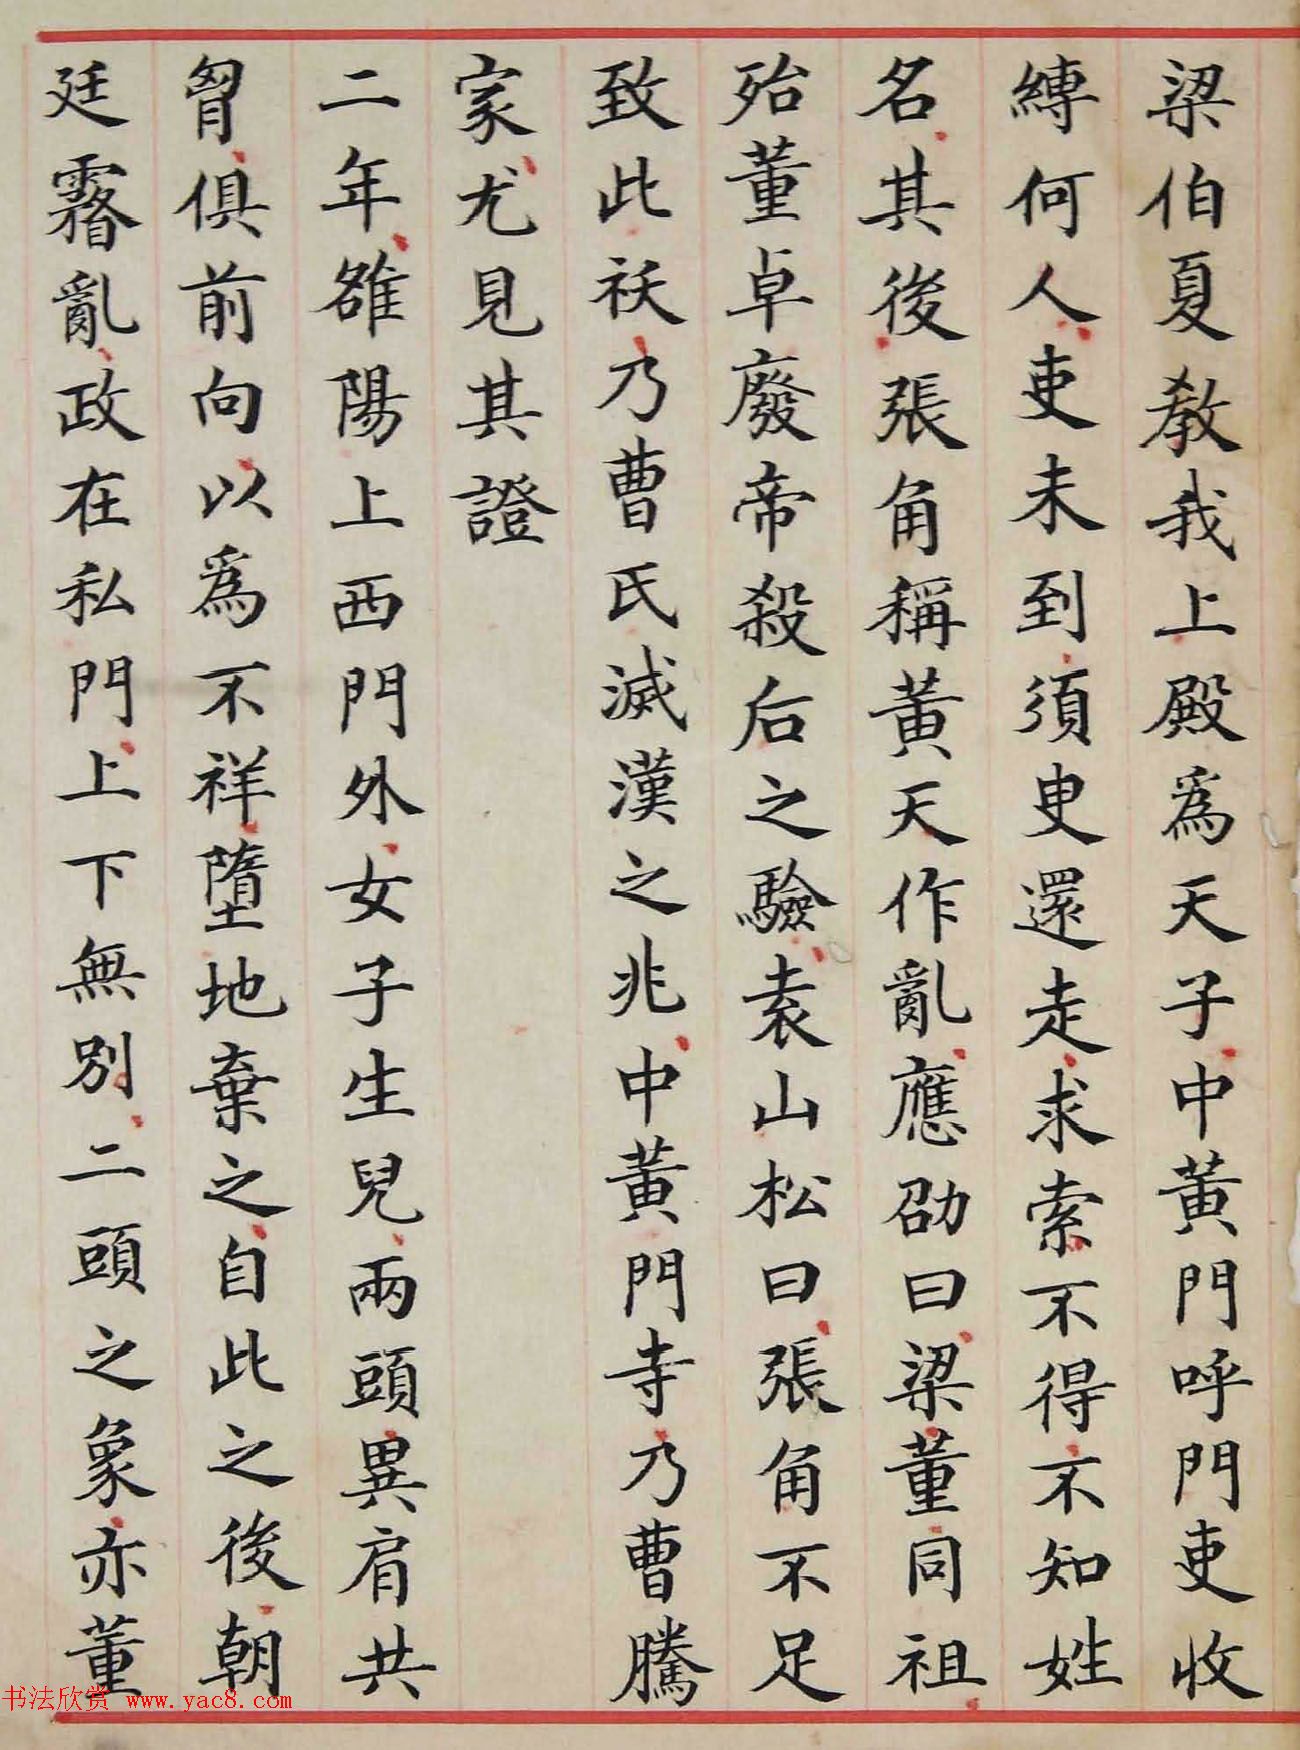 梁伯夏教我上殿爲天子中黃門呼門吏收
縛何人吏未到須臾還走求索不得不知姓
名其後張角稱黃天作亂應劭曰梁董同祖
殆董卓廢帝殺后之驗袁山松曰張角不足
致此祅乃曹氏滅漢之兆中黃門寺乃曹騰
家尤見其證
二年雒陽上西門外女子生兒兩頭異肩共
胷俱前向以爲不祥墮地棄之自此之後朝
廷霿亂政在私門上下無別二頭之象亦董
书法欣赏 www.yac8.com